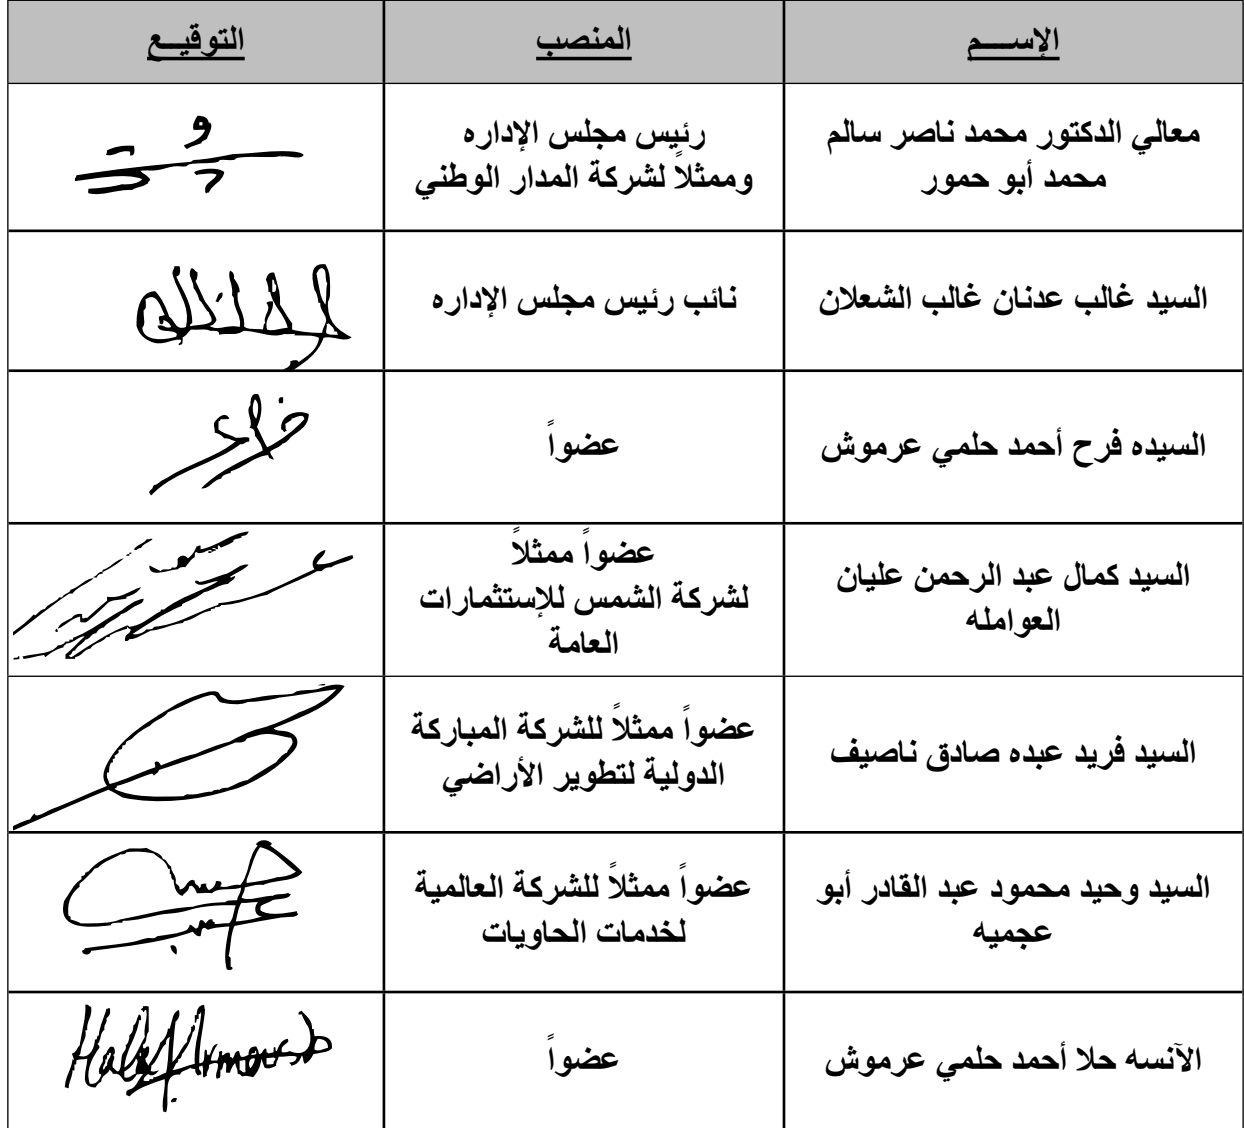 الإســـم المنصب التوقيــع
معالي الدكتور محمد ناصر سالم
محمد أبو حمور
رئيس مجلس الإداره
وممثلاً لشركة المدار الوطني
السيد غالب عدنان غالب الشعلان
نائب رئيس مجلس الإداره
السيده فرح أحمد حلمي عرموش
عضواً
السيد كمال عبد الرحمن عليان
العوامله
عضواً ممثلاً
لشركة الشمس للإستثمارات
العامة
السيد فريد عبده صادق ناصيف
عضواً ممثلاً للشركة المباركة
الدولية لتطوير الأراضي
السيد وحيد محمود عبد القادر أبو
عجميه
عضواً ممثلاً للشركة العالمية
لخدمات الحاويات
الآنسه حلا أحمد حلمي عرموش
عضواً